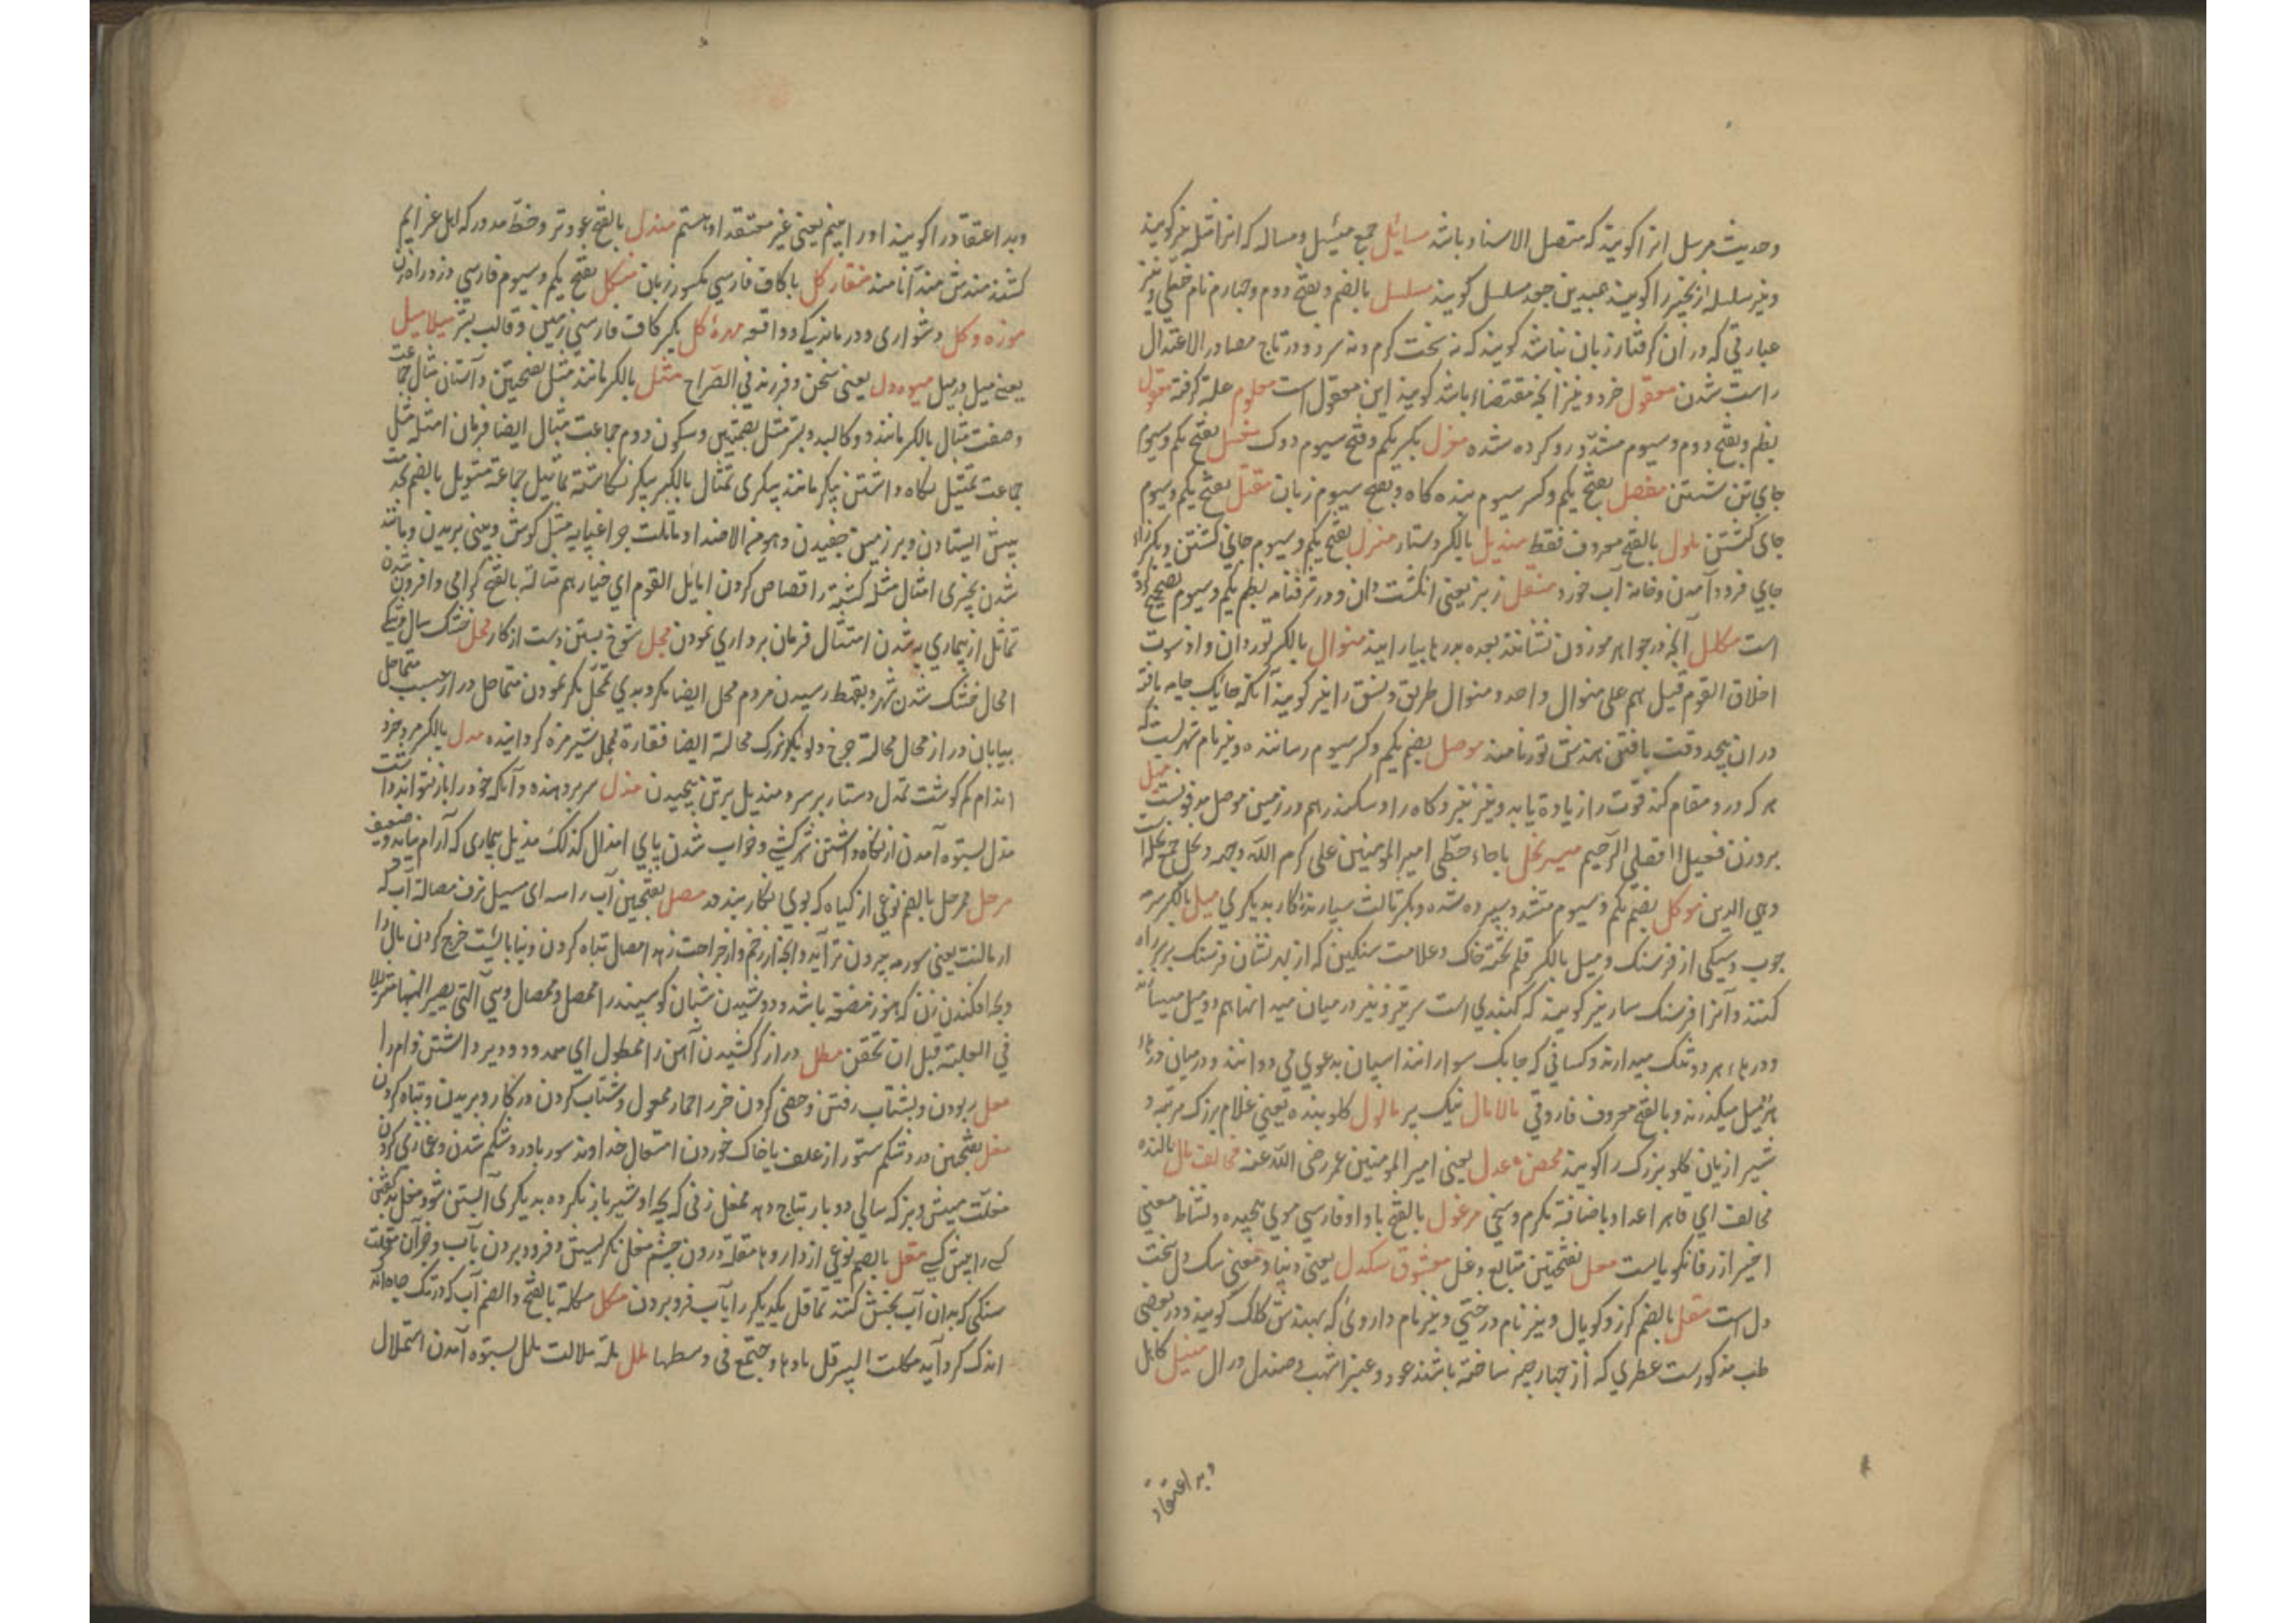 وحدیث مرسل انرا کویند که متصل الاسناد باشد مسائل جمع مسیل ومساله که انرا مثل نیز کویند
ونیز سلسله از نجیر را کویند عبیدین جعد مسلسل کویند مسلسل بالضم وبفتح دوم وچهارم نام خطی ونیز
عبارتی که در ان کرفتار زبان نباشد کویند که نه سخت کرم ونه سرد ودر تاج مصادر الاعتدال
راست شدن معقول خرد ونیز انچه مقتضاء باشد کویند این معقول است معلوم علة کرفته مقول
بظم وبفتح دوم وسیوم مشدد رو کرده شده مغزل بکسر یکم وفتح سیوم دوک مغسل بفتح یکم وسیوم
جای تن شستن مفصل بفتح یکم وکسر سیوم بنده کاه وبفتح سیوم زبان مقتل بفتح یکم وسیوم
جای کشتن ملول بالفتح معروف فقط مندیل بالکسر دستار منزل بفتح یکم وسیوم جای کشتن وبکسر زاء
جای فرود آمدن وخانه آب خورد منقل زیر یعنی انکشت دان ودر ترفنامه بظم یکم وسیوم تصحیح کرد
است مکلل آنچه در جواهر موزون نشانند بعده بدرها بیارایند منوال بالکسر نوردان واذ سویت
اخلاق القوم قیل هم علی منوال واحد ومنوال طریق ونسق را نیز کویند آنکه جایک جامه بافد
در ان پیچد وقت بافتن هندش تور نامند موصل بضم یکم وکسر سیوم رساننده ونیز نام شهریست که
هر که درو مقام کند قوت را زیادة یابد ونیز نغیر وکاه را وسکندر هم در زمین موصل مدفونست میل
بروزن فعیل افعلی الرحیم میر نحل باحاء حطی امیر المومنین علی کرم الله وجهه ونحل جمع نحلة است
وهی الدبن موکل بضم یکم وسیوم مشدد سپرده شده وبکسر ثالث سپارنده کار بدیکری میل بالکسر سرمه
چوب وسیکی از فرسنک ومیل بالکسر قلم تخته خاک وعلامت سنکین که از بهر نشان فرسنک بر سر راه
کنند وآنرا فرسنک سار نیز کویند که کنبدی است سر تیز ونیز در میان میدانها هم دو میل میسازند
ودرهاء هر دو تنک میدارند وکسانی که چابک سوارانند اسپان بدعوی می دوانند ودرمیان درهاء
هر میل میکذرند وبالفتح معروف فاروقی مالامال نیک پر مالول کلو بنده یعنی غلام بزرک مرتبه و
شیرازیان کلو بزرک را کویند محض عدل یعنی امیر المومنین عمر رضی الله عنه مخالف مال مالنده
مخالف ای قاهر اعدا وباضافة بکرم وسخی مرغول بالفتح با واو فارسی موی پیچیده ونشاط معنی
اخیر از زفانکویاست معل بفتحتین متابع وغل معشوق سکدل یعنی دنیا ومعنی سک دل سخت
دل است مقل بالضم کرز وکوپال ونیز نام درختی ونیز نام داروئی که بهندش کلک کویند ودر بعضی
طب مذکورست عطری که از چهار چیز ساخته باشند عود وعنبر اشهب وصندل درال منیل کابل
وبد اعتقاد
وبد اعتقاد را کویند اورا مینم یعنی غیر معتقد او هستم مندل بالفتح عود تر وخط مدور که اهل عزایم
کشند مندش منذآنا منذ منقار کل با کاف فارسی بکسور زبان منکل بفتح یکم وسیوم فارسی دزد راه زن
موزه وکل دشواری ودرماندکی دواقعه مهره کل بکسر کاف فارسی زمین وقالب بشر میلامیل
یعنی میل در میل میوه دل یعنی سخن وفرزند فی الصراح مثل بالکسر مانند مثل بفتحتین داستان مثال جماعت
وصفت مثال بالکسر مانند وکالبد وبستر مثل بضمتین وسکون دوم جماعت مثال ایضا فرمان امثله مثل
جماعت تمثیل نکاه داشتن پیکر مانند پیکری تمثال بالکسر پیکر نکاشته تماثیل جماعة مثویل بالضم بخدمت
بیش ایستادن وبر زمین خفیدن وهو من الاضداد ماثلت چراغپایه مثل کوش وبینی بریدن ومانند
شدن بچیزی امثال مثله کشته را قصاص کردن اماثل القوم ای خیارهم مثاله بالفتح کرامی وافزون شدن
تماثل از بیماری به شدن امتثال فرمان برداری نمودن مجل شوخ بستن دست از کار محل خشک سال وقحط
امحال خشک شدن شهر وبقحط رسیدن مردم محل ایضا مکر وبدی تمحل مکر نمودن متماحل دراز سبسب متماحل
بیابان دراز محال محالة چرخ دلو بکره بزرک محالة ایضا فقارة ممحل شیر مزه کردانیده مدل بالکسر مرد خرد
اندام کم کوشت تمدل دستار بر سر ومندیل بر تن پیچیدن مذل سر برد هنده وآنکه خود را باز نتواند داشت
مذل بستوه آمدن از نکاه داشتن سر کشی وخواب شدن پای امذال کذلک مذیل بیماری که آرام نیابد وضعیف
مرحل ممرحل بالضم نوعی از کیاه که بوی نکار بندد مصل بفتحتین آب راسه ای مسیل نزف مصالة آب که
از ماست یعنی سورمه بیرون تر آید وانچه از زخم واز جراحت زهد امصال تباه کردن ونیا بالیست خرج کردن مال را
وبچه افکندن زن که هنوز مضغه باشد ودوشیدن شبان کوسپند را ممصل وممصال وهی آلتی یصیر لبنها متزیلا
فی العلبة قبل ان تحقن مطل دراز کرد کشیدن آهن را ممطول ای ممدود ودیر داشتن وام را
معل ربودن وبشتاب رفتن وخصی کردن خر را حمار ممعول وشتاب کردن در کار وبریدن وتباه کردن
مغل بفتحتین درد شکم ستور از علف باخاک خوردن امتغال خداوند سور باد درد شکم شدن وغمازی کردن
مغلت میش وبز که سالی دو بار نتاج دهد ممغل زنی که بچه او شیر باز نکرده بدیکری آبستن شود مغل بد کفتن
کسی را پیش کسی مقل بالضم نوعی از داروها مقلة درون چشم مقل نکریستن وفرو بردن بآب وخرآن مقلت
سنکی که بدان آب بخش کنند تماقل یکدیکر را بآب فرو بردن مکل مکلة بالفتح والضم آب که در تک چاه اند
اندک کرد آید مکلت البیر قل ماؤها وجتمع فی وسطها ملل ملة ملالت ملل بستوه آمدن استملال